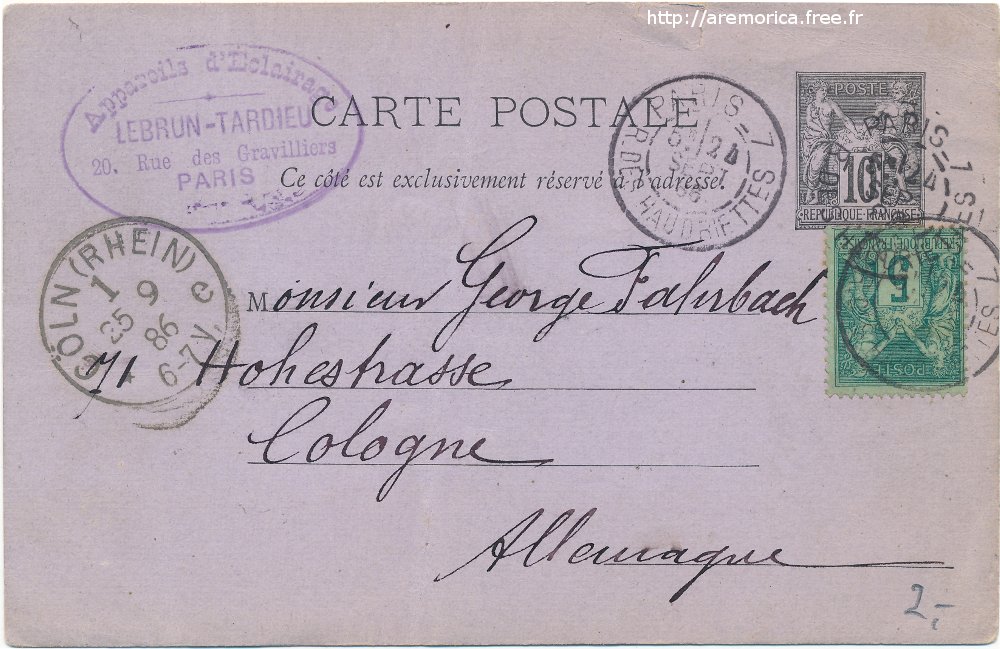 http://aremorica.free.fr
Appareils d'Eclairage
LEBRUN-TARDIEU
20, Rue des Gravilliers
PARIS
CARTE POSTALE
Ce côté est exclusivement réservé à l'adresse.
PARIS-7
24
SEPT
86
R. DES HAUDRIETTES
POSTE
10
REPUBLIQUE FRANÇAISE
PARIS-7
24
SEPT
5
REPUBLIQUE FRANÇAISE
POSTE
CÖLN (RHEIN) C
1
25 9 86
6-7 V.
Monsieur George Fahrbach
71 Hohestrasse
Cologne
Allemagne
2,-